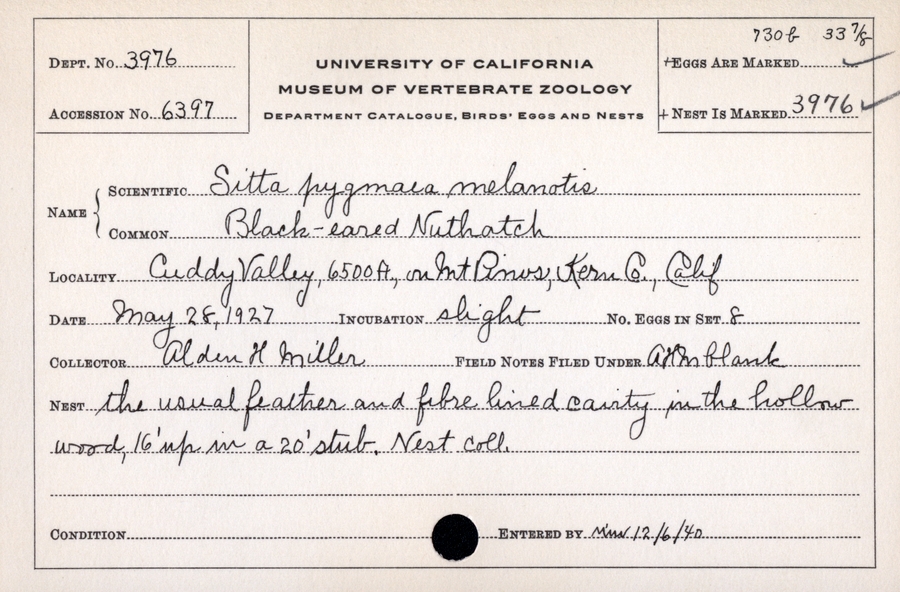 730b 33 7/8
Dept. No. 3976
UNIVERSITY OF CALIFORNIA
+Eggs Are Marked ✓
MUSEUM OF VERTEBRATE ZOOLOGY
Accession No. 6397
Department Catalogue, Birds' Eggs and Nests
+ Nest Is Marked 3976 ✓
Name { Scientific Sitta pygmaea melanotis
Common Black-eared Nuthatch
Locality Cuddy Valley, 6500 ft., on Mt Pinos, Kern Co., Calif
Date May 28, 1927 Incubation slight No. Eggs in Set 8
Collector Alden H Miller Field Notes Filed Under AHM blank
Nest the usual feather and fibre lined cavity in the hollow
wood, 16' up in a 20' stub. Nest coll.
Condition Entered by 12/6/40